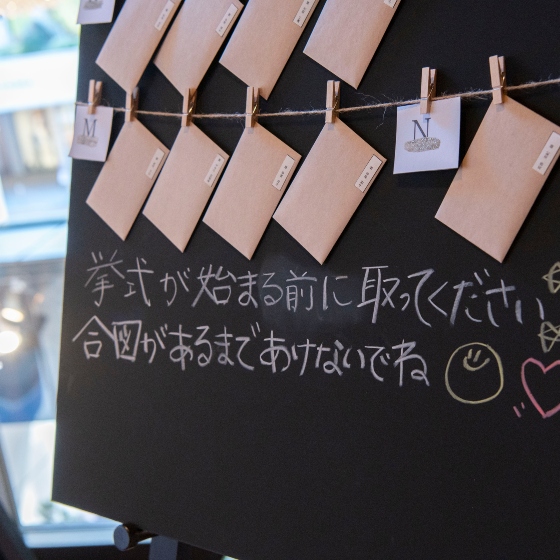 M
N
挙式が始まる前に取ってください
合図があるまであけないでね